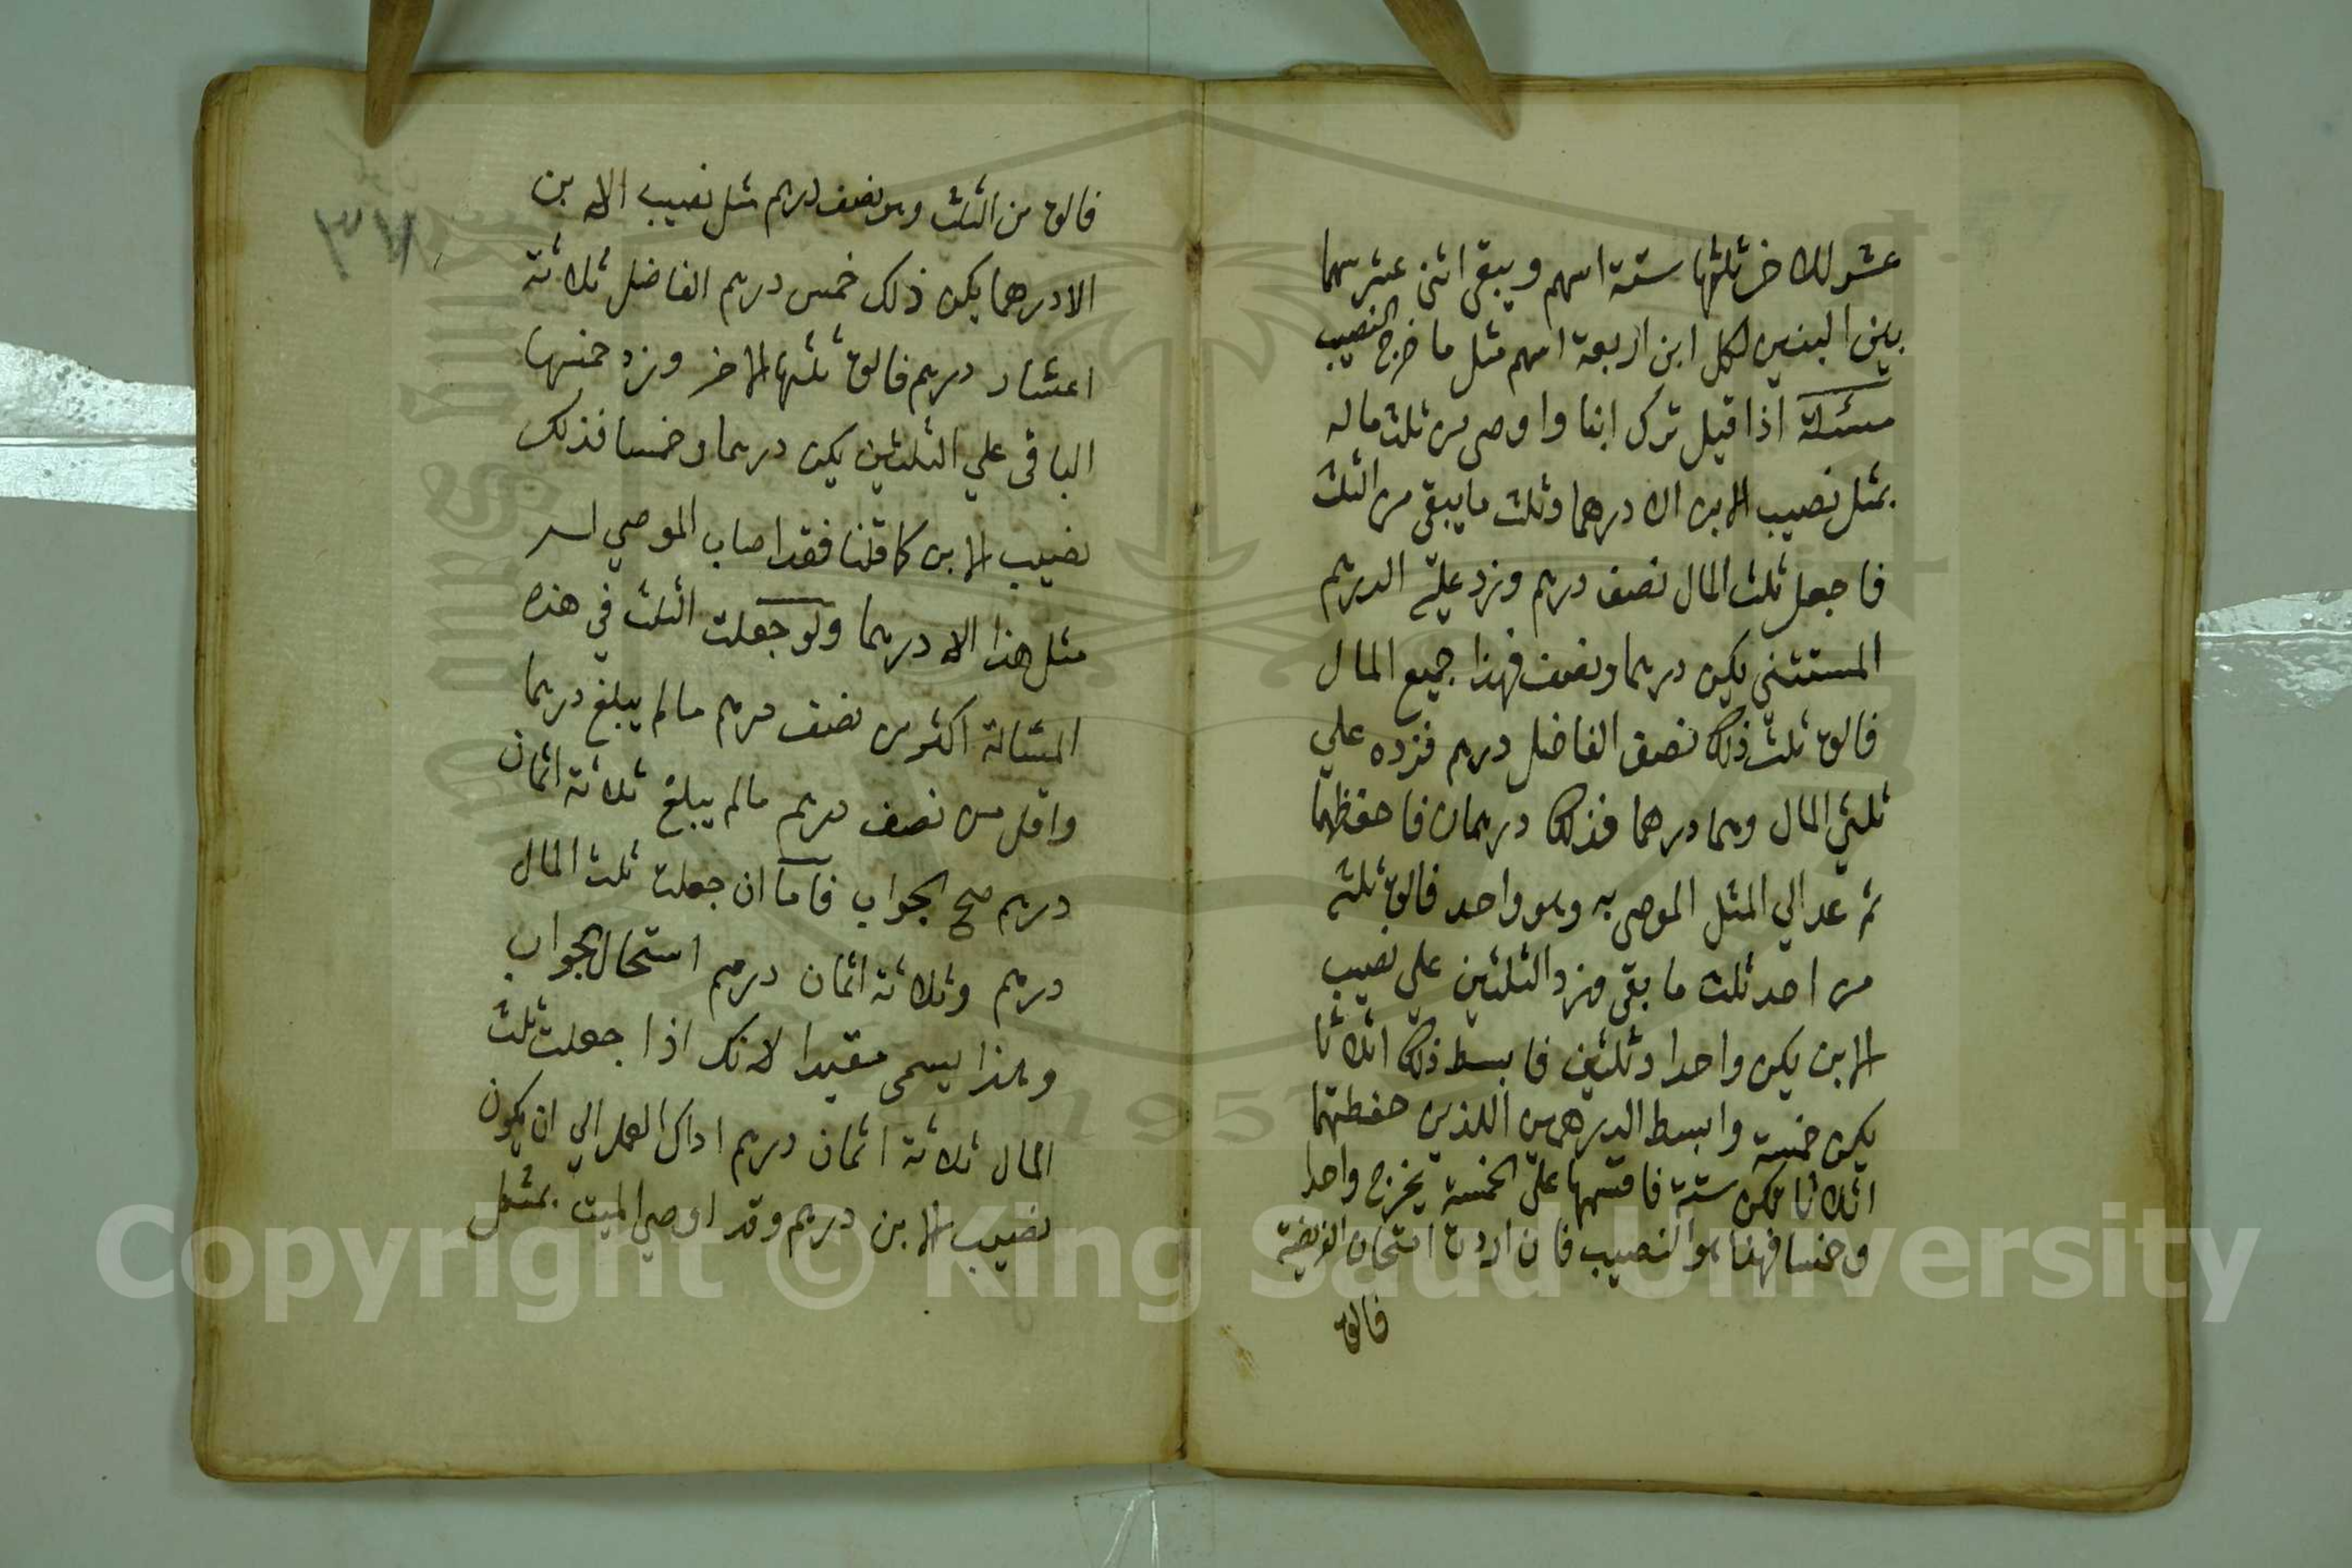 عشر للاخر ثلثها ستة اسهم ويبقى اثنى عشر سهما
بين البنين لكل ابن اربعة اسهم مثل ما خرج النصيب
مسئلة اذا قيل ترك ابنا واوصى من ثلث ماله
بمثل نصيب الابن الا درهما وثلث ما يبقى من الثلث
فاجعل ثلث المال نصف درهم وزد عليه الدرهم
المستثنى يكن درهما ونصف فهذا جميع المال
فالق ثلث ذلك نصف الفاضل درهم فزده علي
ثلثي المال وهما درهما فذلك درهمان فاحفظهما
ثم عد الي المثل الموصى به وهو واحد فالق ثلثه
من احد ثلث ما بقى وزد الثلثين علي نصيب
الابن يكن واحدا وثلثين فابسط ذلك اثلاثا
يكن خمسة وابسط الدرهمين اللذين حفظتهما
اثلاثا تكن ستة فاقسمها على الخمسة يخرج واحدا
وخمسا فهذا هو النصيب فان اردت امتحان الفريضة
فالق
فالق من الثلث وهو نصف درهم مثل نصيب الابن
الا درهما يكن ذلك خمس درهم الفاضل ثلاثة
اعشار درهم فالق ثلثها للاخر وزد خمسها
الباقى علي الثلثين يكن درهما وخمسا فذلك
نصيب الابن كما قلنا فقد اصاب الموصي له
مثل هذا الا درهما ولو جعلت الثلث في هذه
المسئالة اكثر من نصف درهم مالم يبلغ درهما
واقل من نصف درهم مالم يبلغ ثلاثة اثمان
درهم صح الجواب فاما ان جعلت ثلث المال
درهم وثلاثة اثمان درهم استحال الجواب
وهذا يسمى مقيدا لانك اذا جعلت ثلث
المال ثلاثة اثمان درهم اداك العمل الي ان يكون
نصيب الابن درهم وقد اوصي الميت بمثل
Copyright © King Saud University
1957